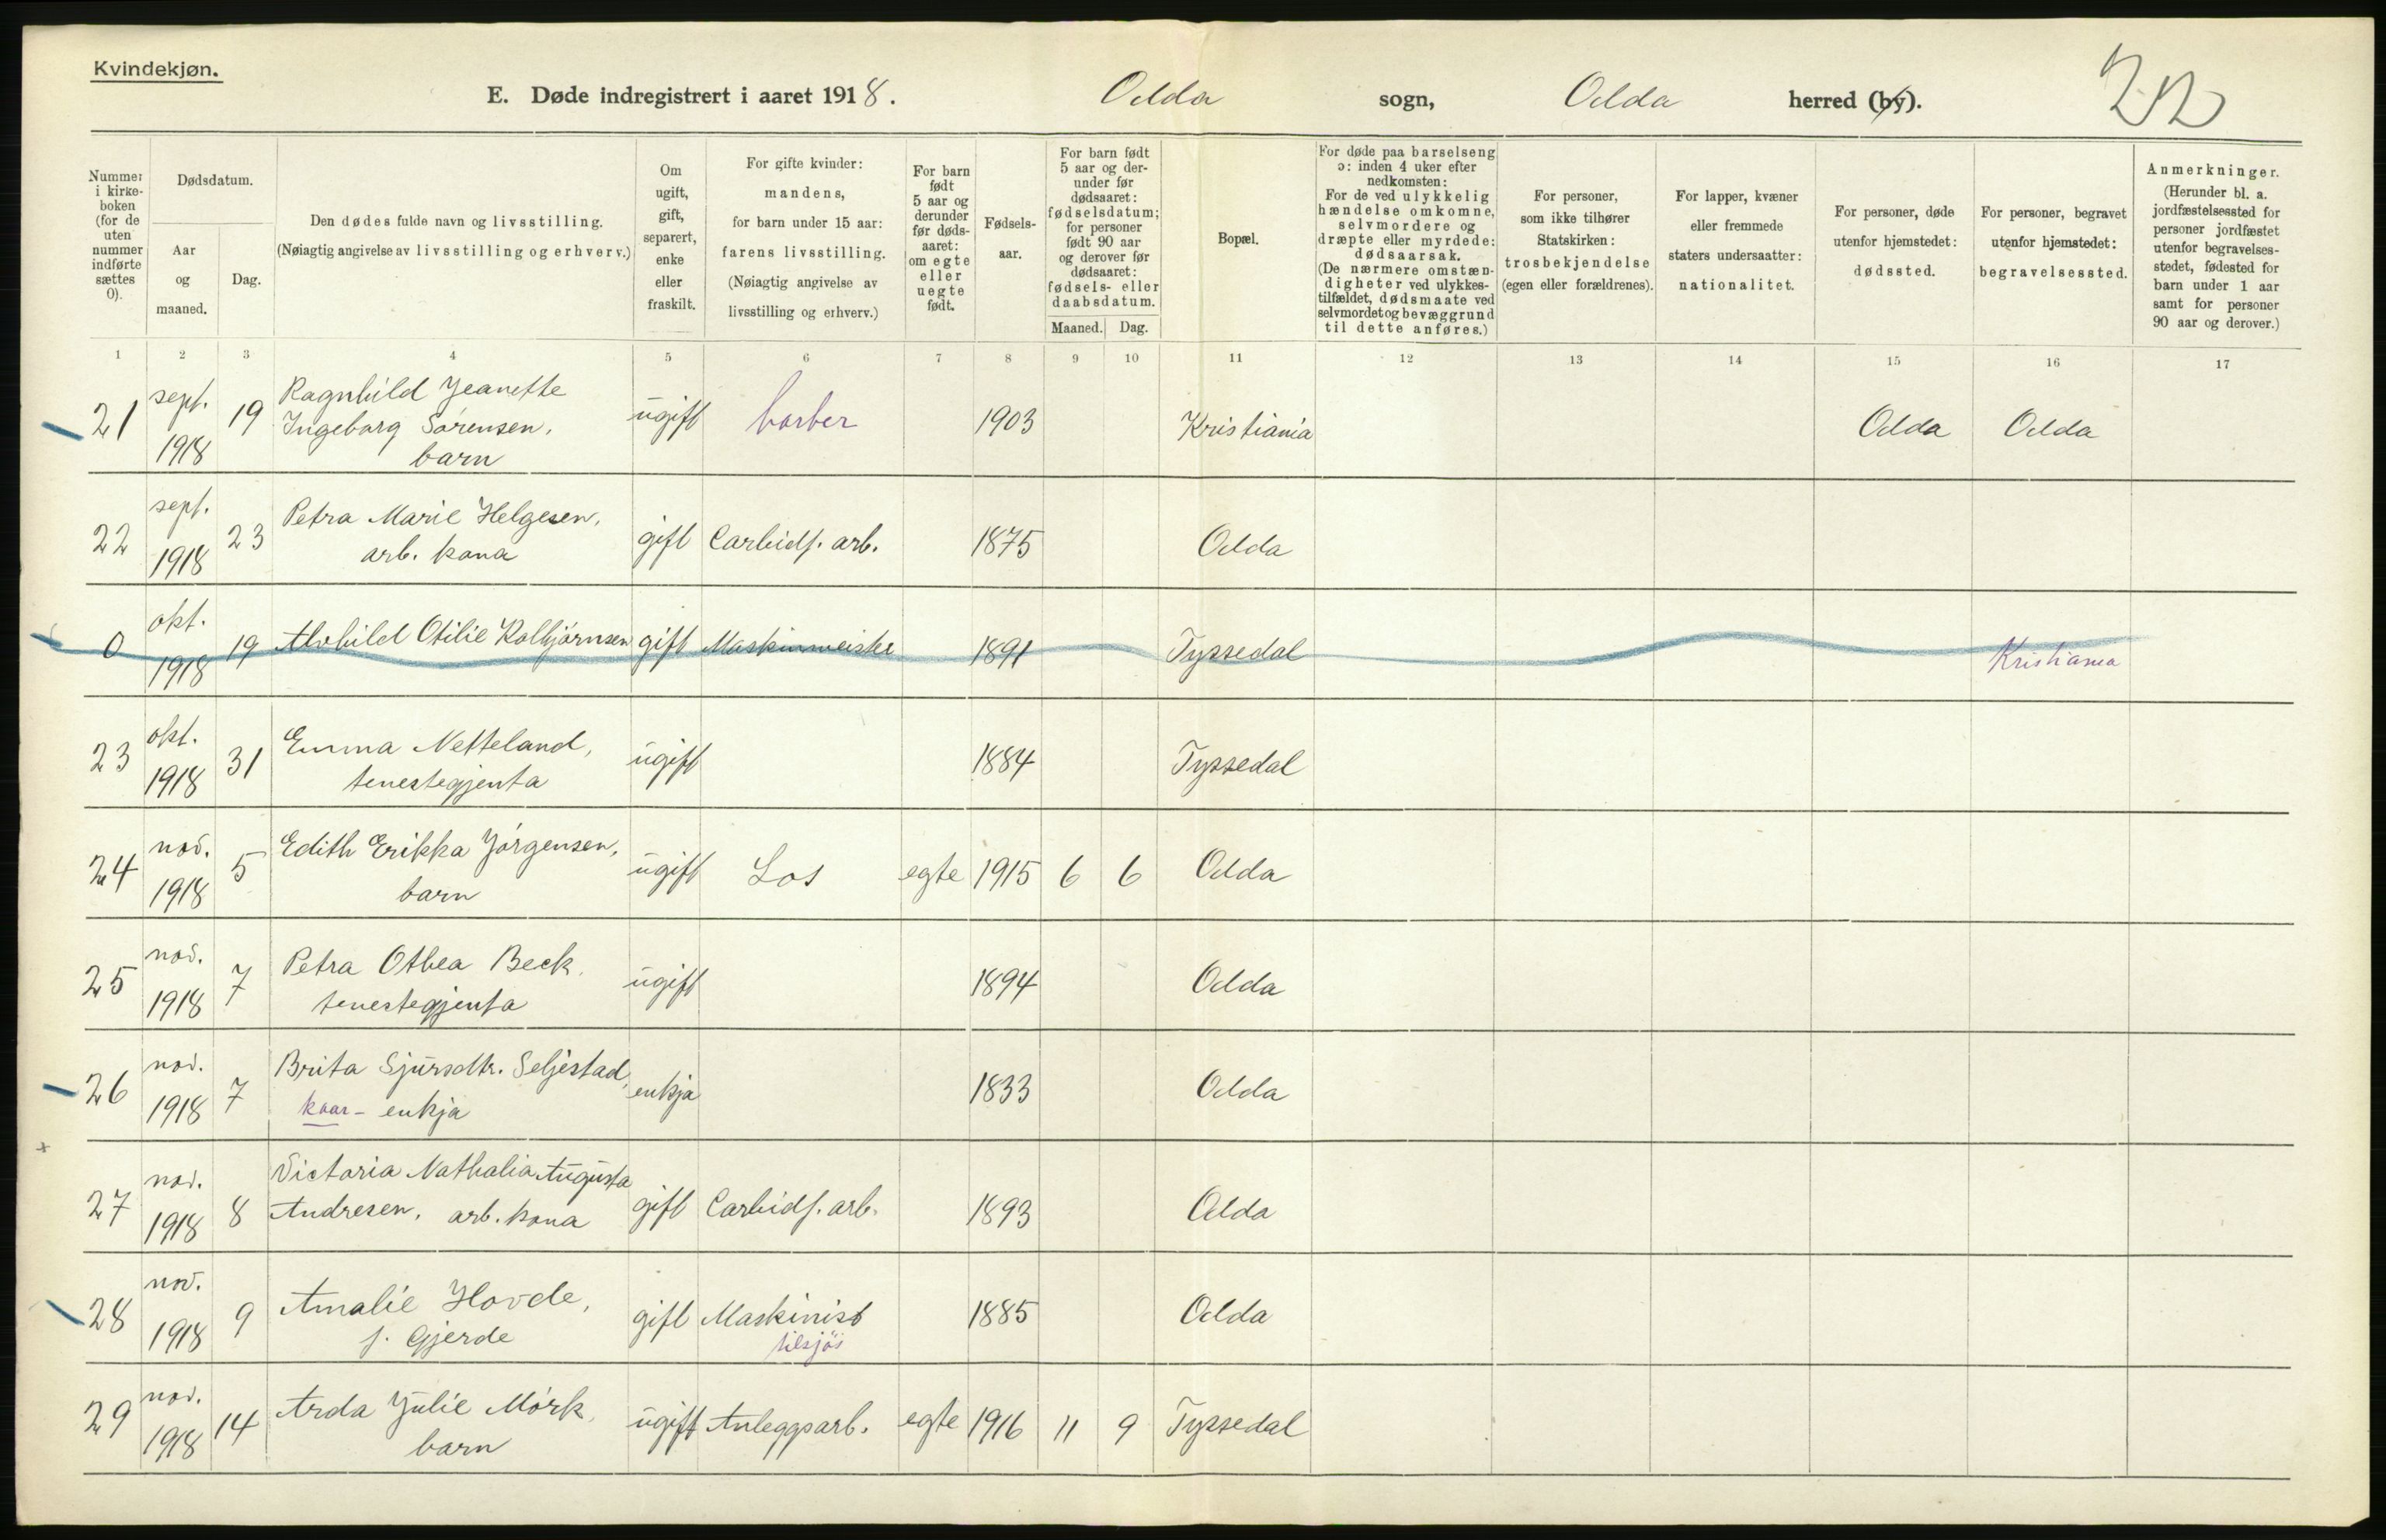 Kvindekjøn.
E. Døde indregistrert i aaret 1918. Odda sogn, Odda herred (by).
22
Nummer i kirkeboken (for de uten nummer indførte sættes 0).
Dødsdatum.
Aar og maaned.
Dag.
Den dødes fulde navn og livsstilling.
(Nøiagtig angivelse av livsstilling og erhverv.)
Om ugift, gift, separert, enke eller fraskilt.
For gifte kvinder: mandens, for barn under 15 aar: farens livsstilling. (Nøiagtig angivelse av livsstilling og erhverv.)
For barn født 5 aar og derunder før dødsaaret: om egte eller uegte født.
Fødselsaar.
For barn født 5 aar og derunder før dødsaaret: fødselsdatum; for personer født 90 aar og derover før dødsaaret: fødsels- eller daabsdatum.
Maaned. Dag.
Bopæl.
For døde paa barselseng ɔ: inden 4 uker efter nedkomsten: For de ved ulykkelig hændelse omkomne, selvmordere og dræpte eller myrdede: dødsaarsak. (De nærmere omstændigheter ved ulykkestilfældet, dødsmaate ved selvmordet og bevæggrund til dette anføres.)
For personer, som ikke tilhører Statskirken: trosbekjendelse (egen eller forældrenes).
For lapper, kvæner eller fremmede staters undersaatter: nationalitet.
For personer, døde utenfor hjemstedet: dødssted.
For personer, begravet utenfor hjemstedet: begravelsessted.
Anmerkninger. (Herunder bl. a. jordfæstelsessted for personer jordfæstet utenfor begravelsesstedet, fødested for barn under 1 aar samt for personer 90 aar og derover.)
1 2 3 4 5 6 7 8 9 10 11 12 13 14 15 16 17
21 sept. 1918 19 Ragnhild Jeanette Ingeborg Sørensen, barn ugift barber 1903 Kristiania Odda Odda
22 sept. 1918 23 Petra Marie Helgesen, arb. kona gift Carbidf. arb. 1875 Odda
0 okt. 1918 19 Alvhild Otilie Kolbjørnsen gift Maskinmeister 1891 Tyssedal Kristiania
23 okt. 1918 31 Emma Netteland, tenestegjenta ugift 1884 Tyssedal
24 nov. 1918 5 Edith Erikka Jørgensen, barn ugift Los egte 1915 6 6 Odda
25 nov. 1918 7 Petra Othea Beck, tenestegjenta ugift 1894 Odda
26 nov. 1918 7 Brita Sjursdtr. Seljestad, kaar- enkja enkja 1833 Odda
27 nov. 1918 8 Victoria Nathalia Augusta Andresen, arb. kona gift Carbidf. arb. 1893 Odda
28 nov. 1918 9 Amalie Hovde, f. Gjerde gift Maskinist tilsjøs 1885 Odda
29 nov. 1918 14 Arda Julie Mørk, barn ugift Anleggsarb. egte 1916 11 9 Tyssedal